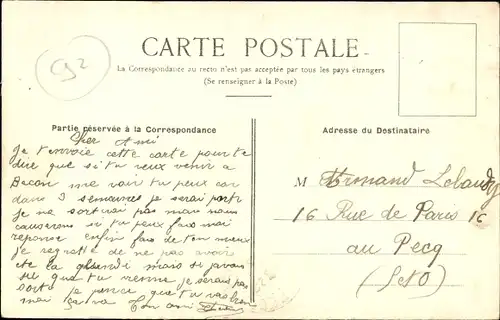 C92
CARTE POSTALE
La Correspondance au recto n'est pas acceptée par tous les pays étrangers
(Se renseigner à la Poste)
Partie réservée à la Correspondance
Cher Ami
Je t'envoie cette carte pour te
dire que si tu veux venir a
Becon me voir tu peux car
dans 3 semaines je serai parti
je ne sortirai pas mais nous
causerons si tu peux fais moi
reponse enfin fais de ton mieux
je regrette de ne pas avoir
ete la mais si javais
su que tu vienne je serais pas
sorti je pence que tu vas bien
moi ça va Ton ami
Adresse du Destinataire
M Armand Lebaudy
16 Rue de Paris 16
au Pecq
(S et O)